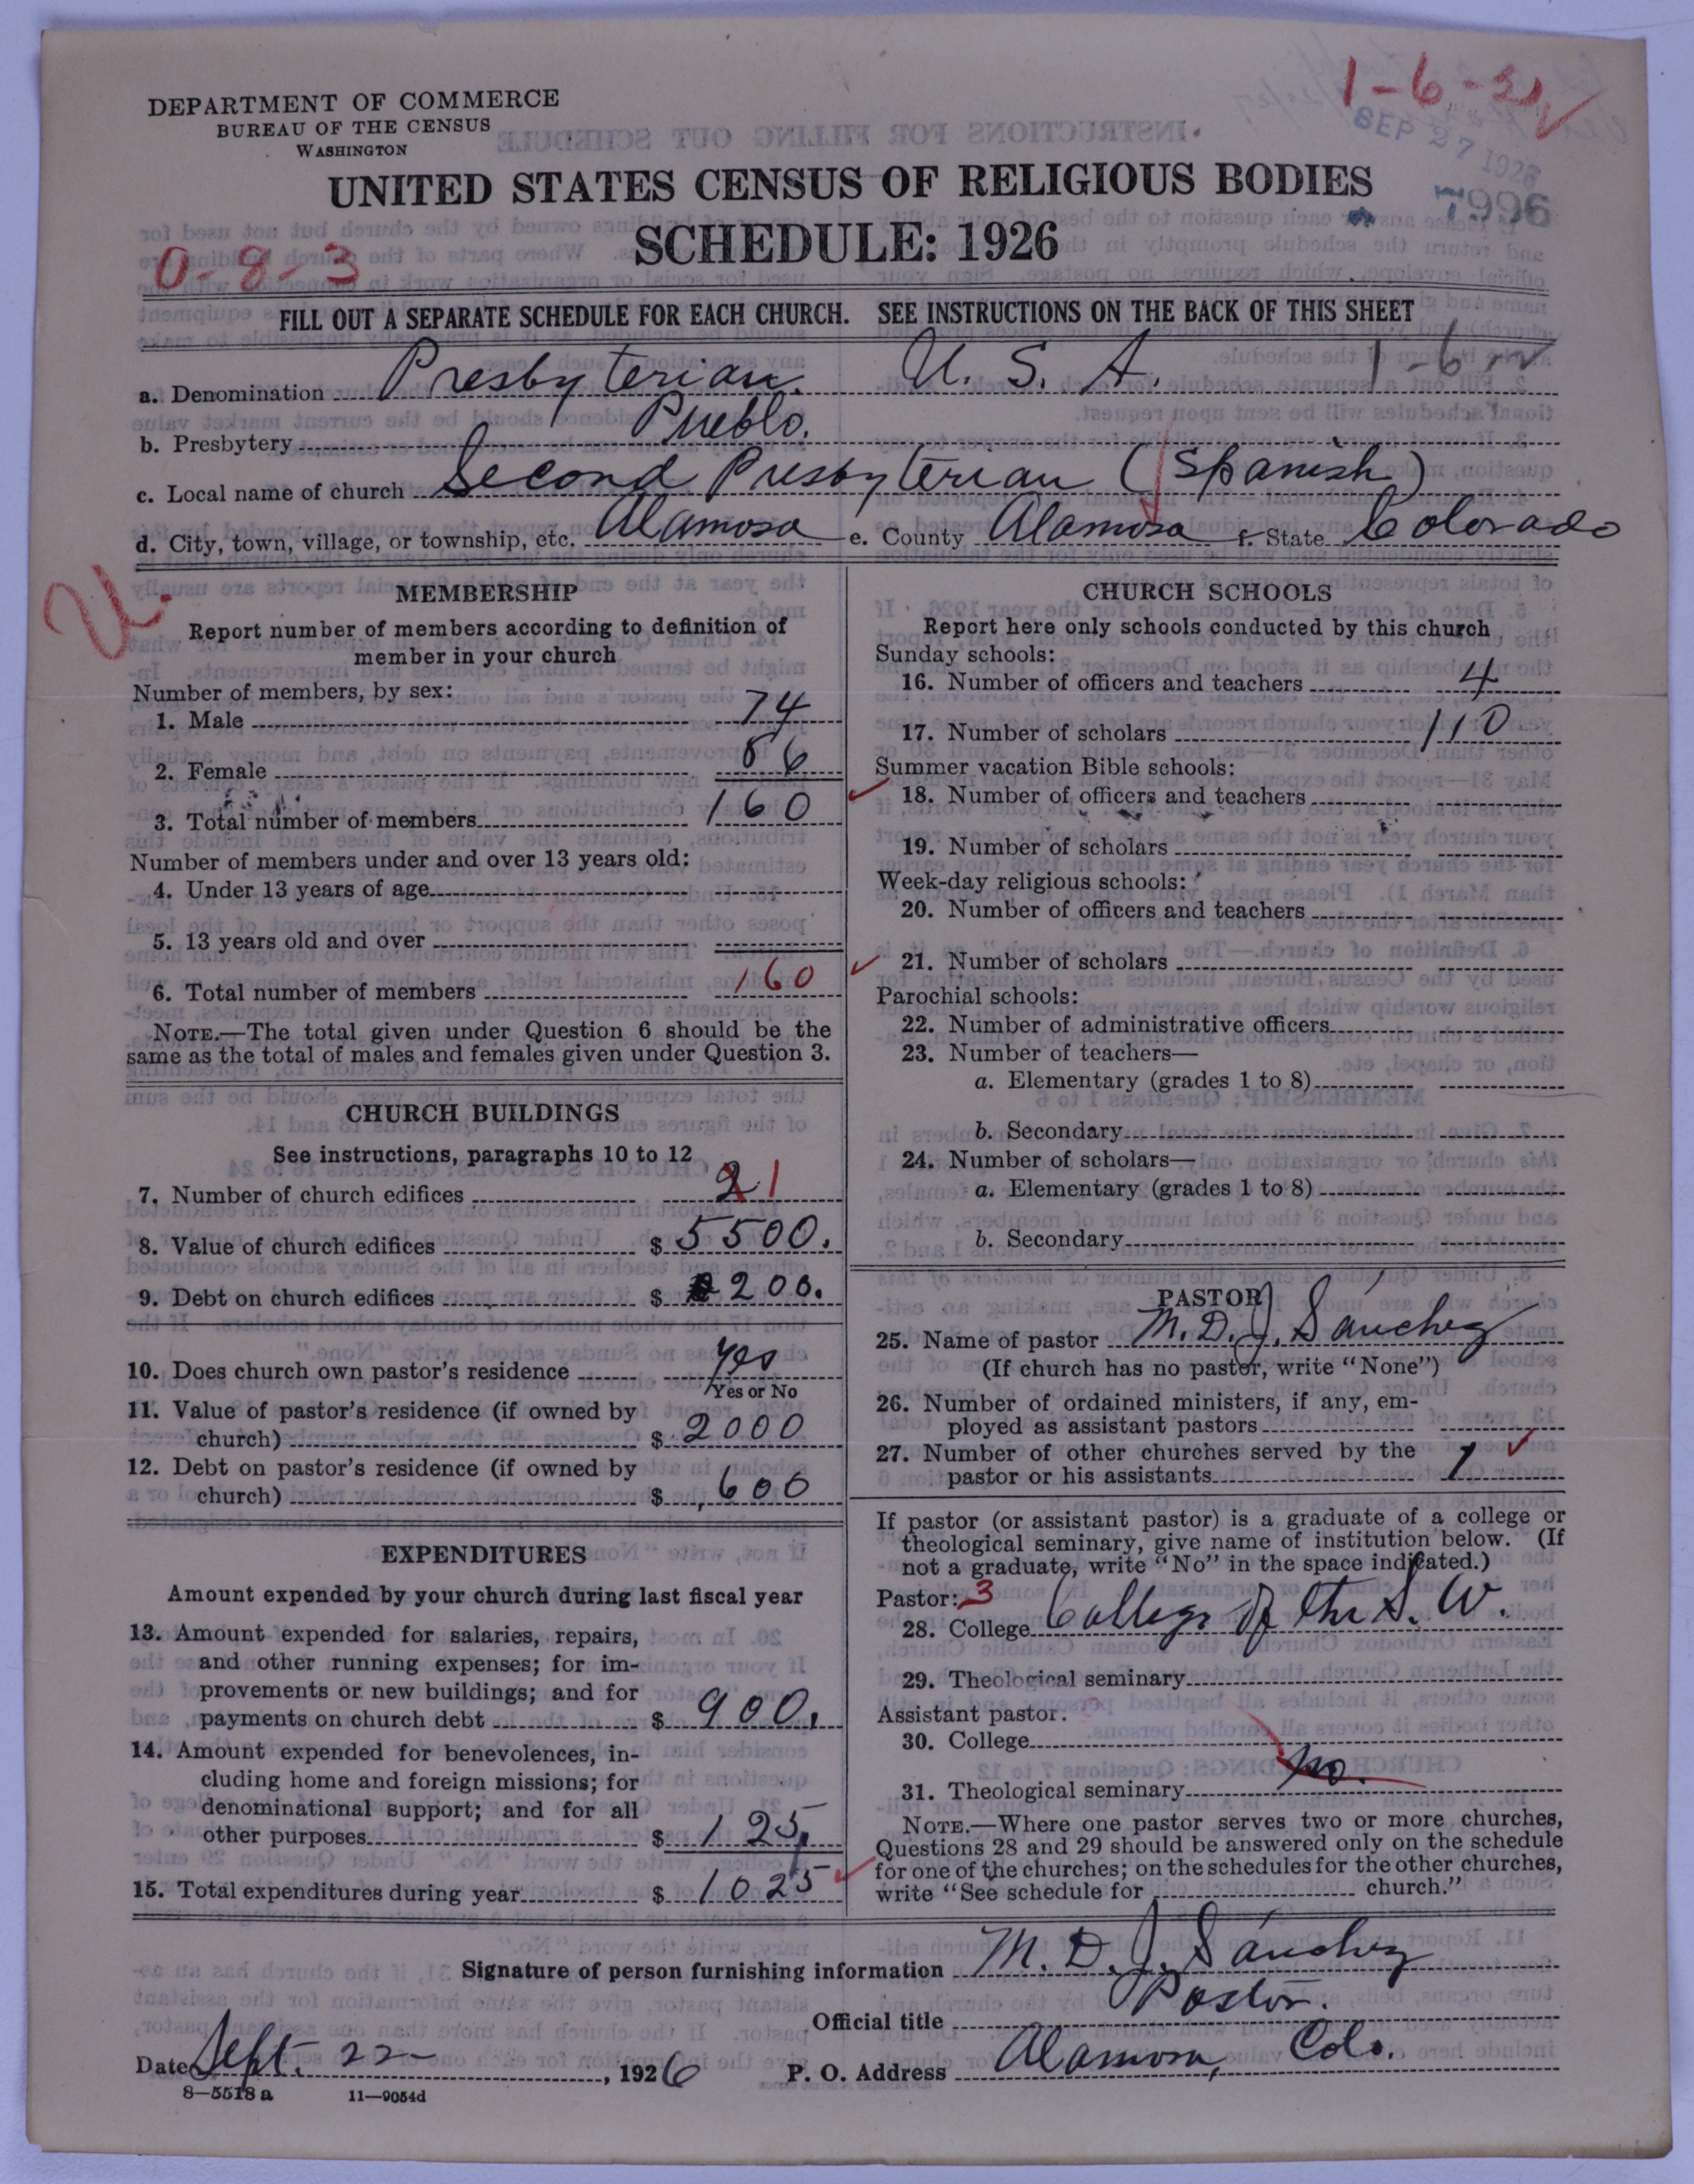 DEPARTMENT OF COMMERCE
BUREAU OF THE CENSUS
WASHINGTON
SEP 27 1926
7996
UNITED STATES CENSUS OF RELIGIOUS BODIES
SCHEDULE: 1926
0-8-3
FILL OUT A SEPARATE SCHEDULE FOR EACH CHURCH. SEE INSTRUCTIONS ON THE BACK OF THIS SHEET
a. Denomination Presbyterian. U. S. A. 1-6-
b. Presbytery Pueblo.
c. Local name of church Second Presbyterian (Spanish)
d. City, town, village, or township, etc. Alamosa e. County Alamosa f. State Colorado
U.
MEMBERSHIP
Report number of members according to definition of
member in your church
Number of members, by sex:
1. Male 74
2. Female 86
3. Total number of members 160
Number of members under and over 13 years old:
4. Under 13 years of age
5. 13 years old and over
6. Total number of members 160
NOTE.—The total given under Question 6 should be the
same as the total of males and females given under Question 3.
CHURCH BUILDINGS
See instructions, paragraphs 10 to 12
7. Number of church edifices 2 1
8. Value of church edifices $ 5500.
9. Debt on church edifices $ 200.
10. Does church own pastor's residence Yes
Yes or No
11. Value of pastor's residence (if owned by
church) $ 2000
12. Debt on pastor's residence (if owned by
church) $ 600
EXPENDITURES
Amount expended by your church during last fiscal year
13. Amount expended for salaries, repairs,
and other running expenses; for im-
provements or new buildings; and for
payments on church debt $ 900.
14. Amount expended for benevolences, in-
cluding home and foreign missions; for
denominational support; and for all
other purposes $ 125,
15. Total expenditures during year $ 1025
CHURCH SCHOOLS
Report here only schools conducted by this church
Sunday schools:
16. Number of officers and teachers 4
17. Number of scholars 110
Summer vacation Bible schools:
18. Number of officers and teachers
19. Number of scholars
Week-day religious schools:
20. Number of officers and teachers
21. Number of scholars
Parochial schools:
22. Number of administrative officers
23. Number of teachers—
a. Elementary (grades 1 to 8)
b. Secondary
24. Number of scholars—
a. Elementary (grades 1 to 8)
b. Secondary
PASTOR
25. Name of pastor M. D. J. Sánchez
(If church has no pastor, write "None")
26. Number of ordained ministers, if any, em-
ployed as assistant pastors
27. Number of other churches served by the
pastor or his assistants 1
If pastor (or assistant pastor) is a graduate of a college or
theological seminary, give name of institution below. (If
not a graduate, write "No" in the space indicated.)
Pastor: 3
28. College College of the S. W.
29. Theological seminary
Assistant pastor:
30. College
31. Theological seminary No.
NOTE.—Where one pastor serves two or more churches,
Questions 28 and 29 should be answered only on the schedule
for one of the churches; on the schedules for the other churches,
write "See schedule for church."
Signature of person furnishing information M. D. J. Sánchez
Official title Pastor.
Date Sept. 22 , 1926 P. O. Address Alamosa, Colo.
8—5518 a 11—9054d